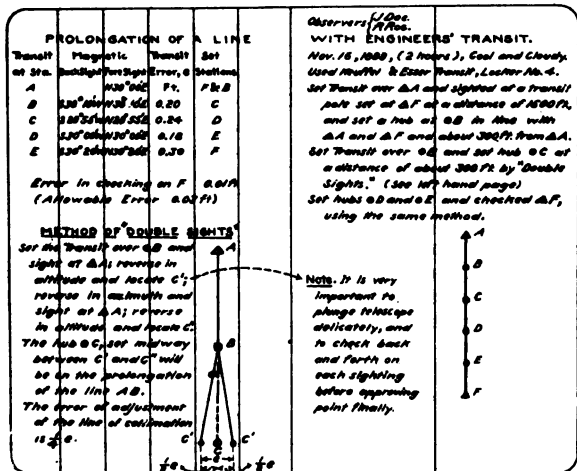 PROLONGATION OF A LINE
Transit Magnetic Transit Set
at Sta. BackSight ForeSight Error, e Stations
A N30°00'E Ft. F & B
B S30°10'W 0.20 C
C 0.24 D
D 0.18 E
E 0.30 F
Error in checking on F 0.01 ft
(Allowable Error 0.02 ft)
METHOD OF "DOUBLE SIGHTS"
Set the Transit over ⊙B and
sight at △A; reverse in
altitude and locate C';
reverse in azimuth and
sight at △A; reverse
in altitude and locate C".
The hub ⊙C, set midway
between C' and C" will
be on the prolongation
of the line AB.
The error of adjustment
of the line of collimation
is ¼ e.
A
B
C" C C'
e
½e ½e
Observers { J. Doe.
R. Roe.
WITH ENGINEERS' TRANSIT.
Nov. 16, (2 hours), Cool and Cloudy.
Used Keuffel & Esser Transit, Locker No. 4.
Set Transit over △A and sighted at a transit
pole set at △F at a distance of 1500 ft,
and set a hub at ⊙B in line with
△A and △F and about 300 ft. from △A.
Set Transit over ⊙B and set hub ⊙C at
a distance of about 300 ft. by "Double
Sights." (See left hand page)
Set hubs ⊙D and ⊙E and checked △F,
using the same method.
Note. It is very
important to
plunge telescope
delicately, and
to check back
and forth on
each sighting
before approving
point finally.
A
B
C
D
E
F